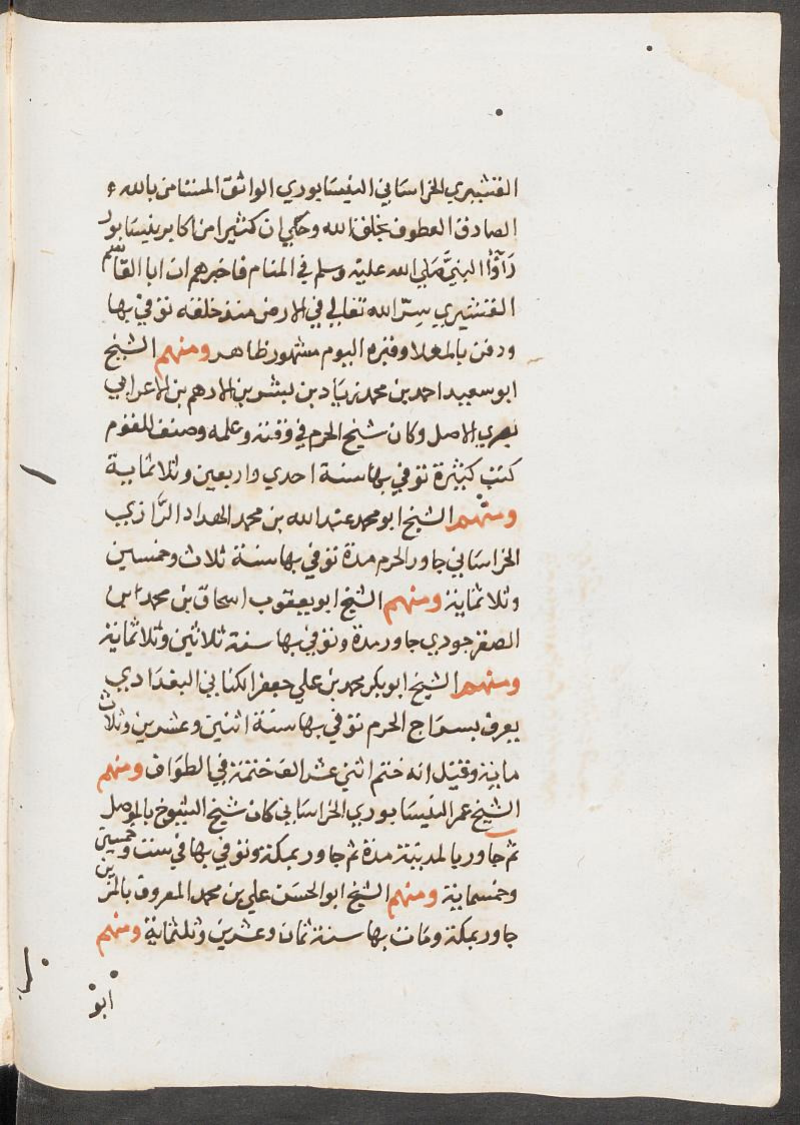 القشيري الخراساني النيسابوري الواثق المستامن بالله
الصادق العطوف بخلق الله وحكي ان كثيرا من اكابر نيسابور
رآؤا النبيّ صلي الله عليه وسلم في المنام فاخبرهم ان ابا القاسم
القشيري سرّ الله تعالي في الارض منذ خلقه توفي بها
ودفن بالمعلا وقبره اليوم مشهور ظاهر ومنهم الشيخ
ابو سعيد احمد بن محمد زياد بن بشر بن الادرهم بن الاعرابي
بصري الاصل وكان شيخ الحرم في وقته وعلمه وصنف للقوم
كتب كثيرة توفي بها سنة احدي واربعين وثلاثماية
ومنهم الشيخ ابو محمد عبد الله بن محمد الحداد الرّازي
الخراساني جاور الحرم مدة توفي بها سنة ثلاث وخمسين
وثلاثماية ومنهم الشيخ ابو يعقوب اسحاق بن محمد ابن
الصهرجودي جاور مدة وتوفي بها سنة ثلاثين وثلاثماية
ومنهم الشيخ ابو بكر محمد بن علي جعفر الكناني البغدادي
يعرف بسراج الحرم توفي بها سنة اثنين وعشرين وثلاث
ماية وقيل انه ختم اثني عشر الف ختمة في الطواف ومنهم
الشيخ عمر النيسابوري الخراساني كان شيخ الشيوخ بالموصل
ثم جاور بالمدينة مدة ثم جاور بمكة وتوفي بها في ست وخمسين
وخمسماية ومنهم الشيخ ابو الحسن علي بن محمد المعروف بالمزين
جاور بمكة ومات بها سنة ثمان وعشرين وثلثماية ومنهم
ابو